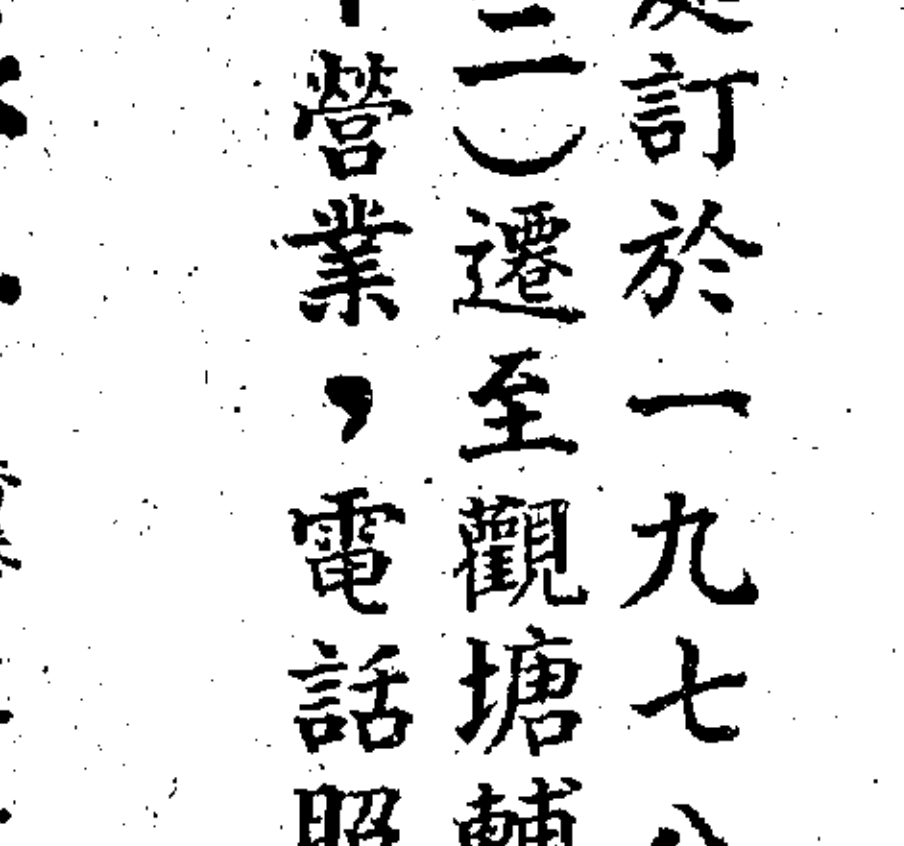 訂於一九七八
二）遷至觀塘輔
營業，電話照